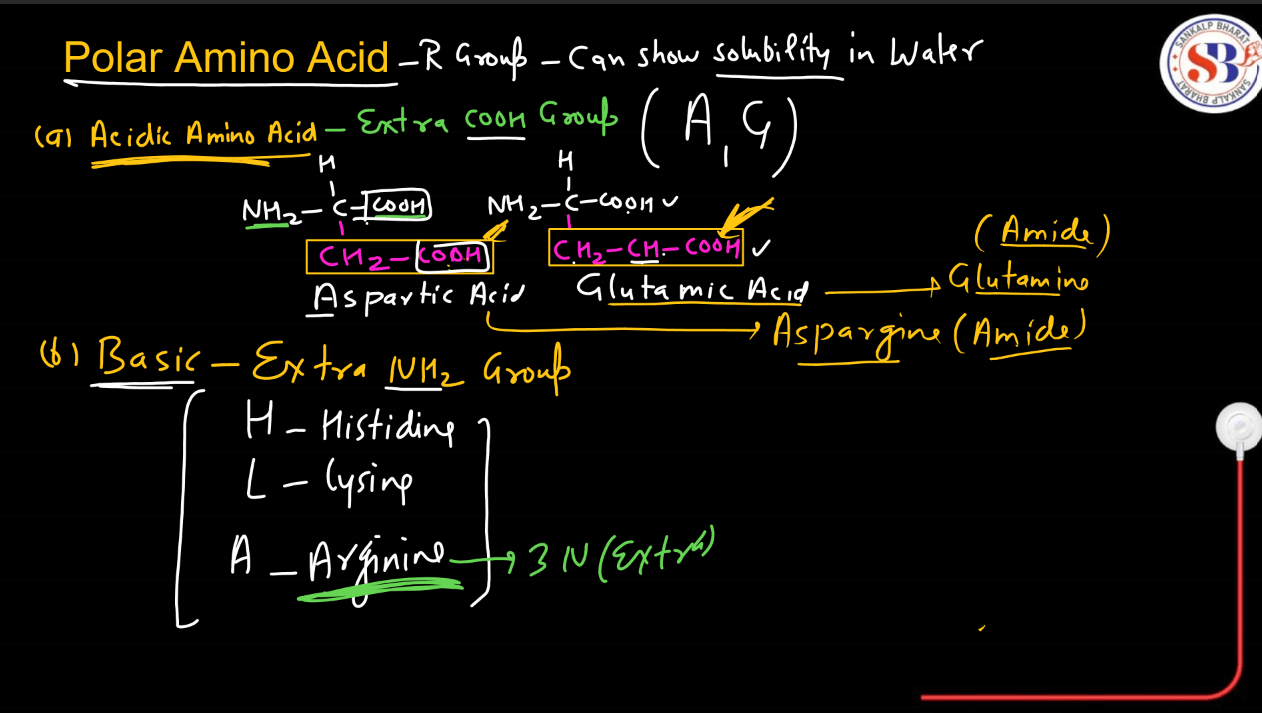 Polar Amino Acid – R Group – Can show solubility in Water
(a) Acidic Amino Acid – Extra COOH Group (A, G)
H H
NH2–C–COOH NH2–C–COOH ✓
CH2–COOH CH2–CH–COOH ✓
(Amide)
Aspartic Acid Glutamic Acid → Glutamine
→ Aspargine (Amide)
(b) Basic – Extra NH2 Group
H – Histidine
L – Lysine
A – Arginine → 3 N (Extra)
SANKALP BHARAT
SB
SANKALP BHARAT